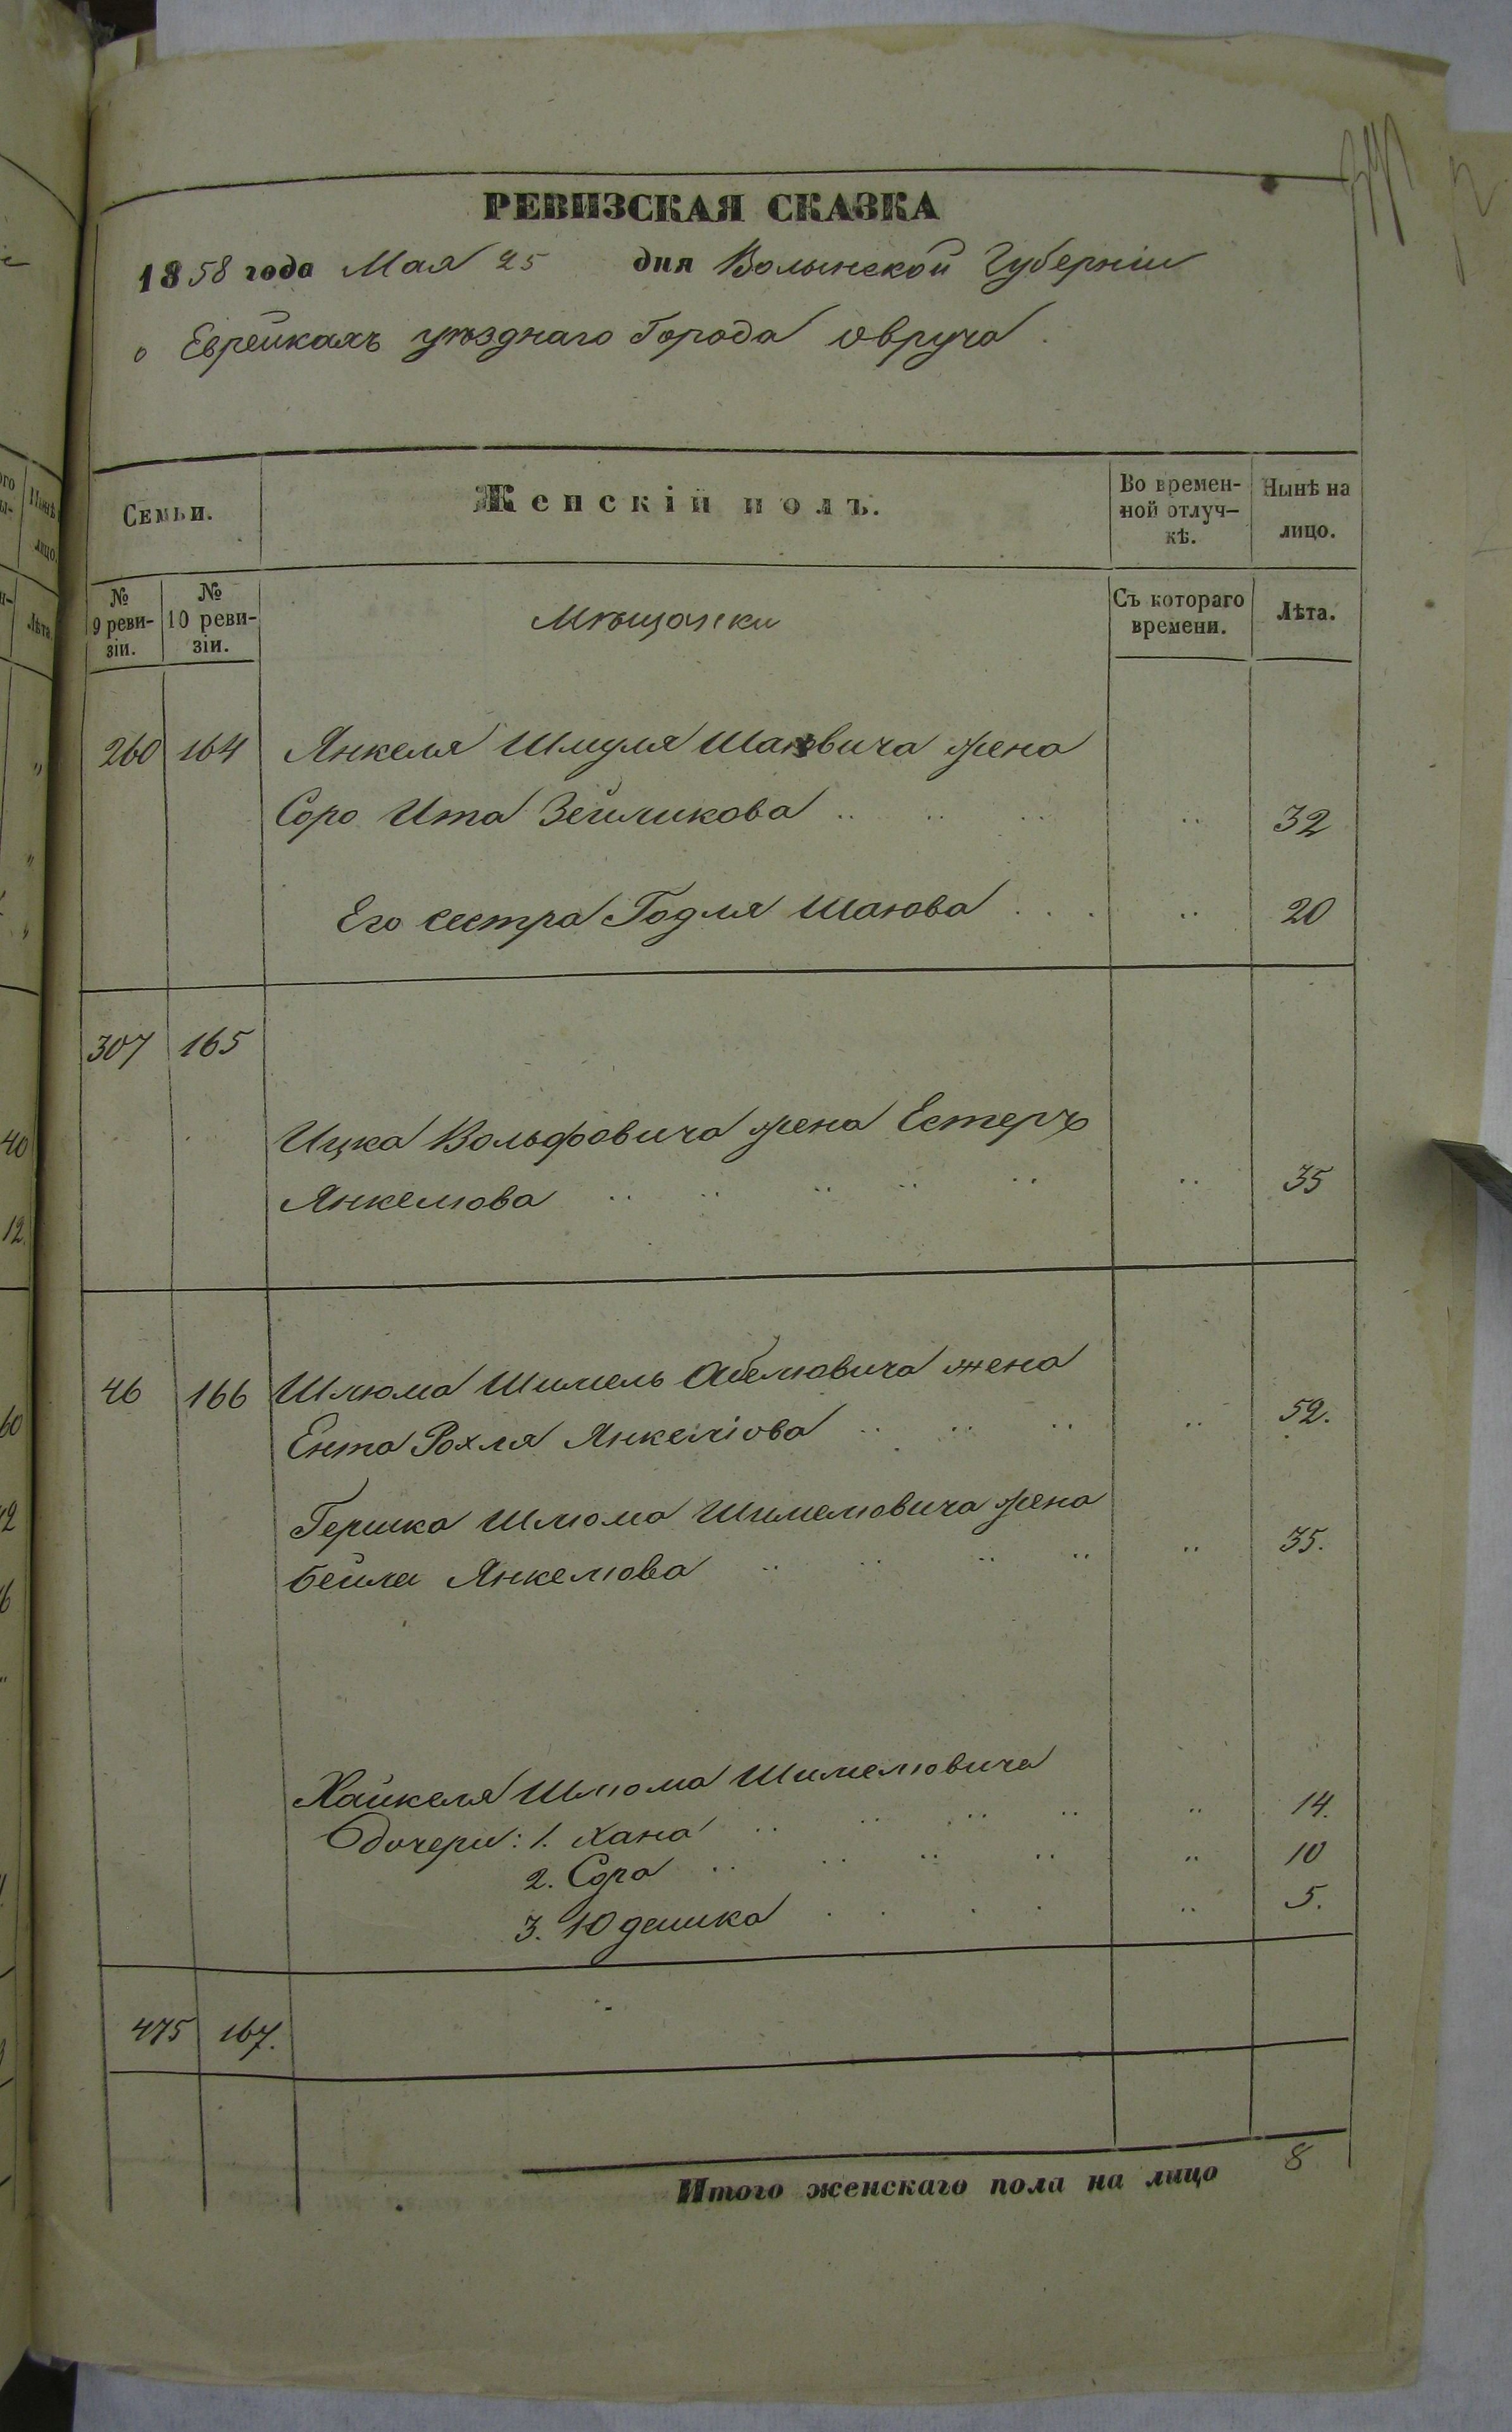 РЕВИЗСКАЯ СКАЗКА
1858 года Мая 25 дня Волынской Губерніи
о Еврейкахъ уѣзднаго Города Овруча.
Семьи.
Женскій полъ.
Во времен-
ной отлуч-
кѣ.
Нынѣ на
лицо.
№
9 реви-
зіи.
№
10 реви-
зіи.
Мѣщанки
Съ котораго
времени.
Лѣта.
260 164 Янкеля Шмуля Шаювича жена
Сора Ита Зейликова .. .. .. .. 32
Его сестра Годля Шаюва . . . .. 20
307 165
Ицка Вольфовича жена Естеръ
Янкелюва .. .. .. .. .. .. 35
46 166 Шлюма Шимель Абелювича жена
Ента Рохля Янкеліова .. .. .. .. 52.
Гершка Шлюма Шимелювича жена
Бейла Янкелюва .. .. .. .. .. 35.
Хайкеля Шлюма Шимелювича
дочери: 1. Хана .. .. .. .. .. 14.
2. Сора .. .. .. .. .. 10
3. Юдашка . . . . .. 5.
475 167.
Итого женскаго пола на лицо 8